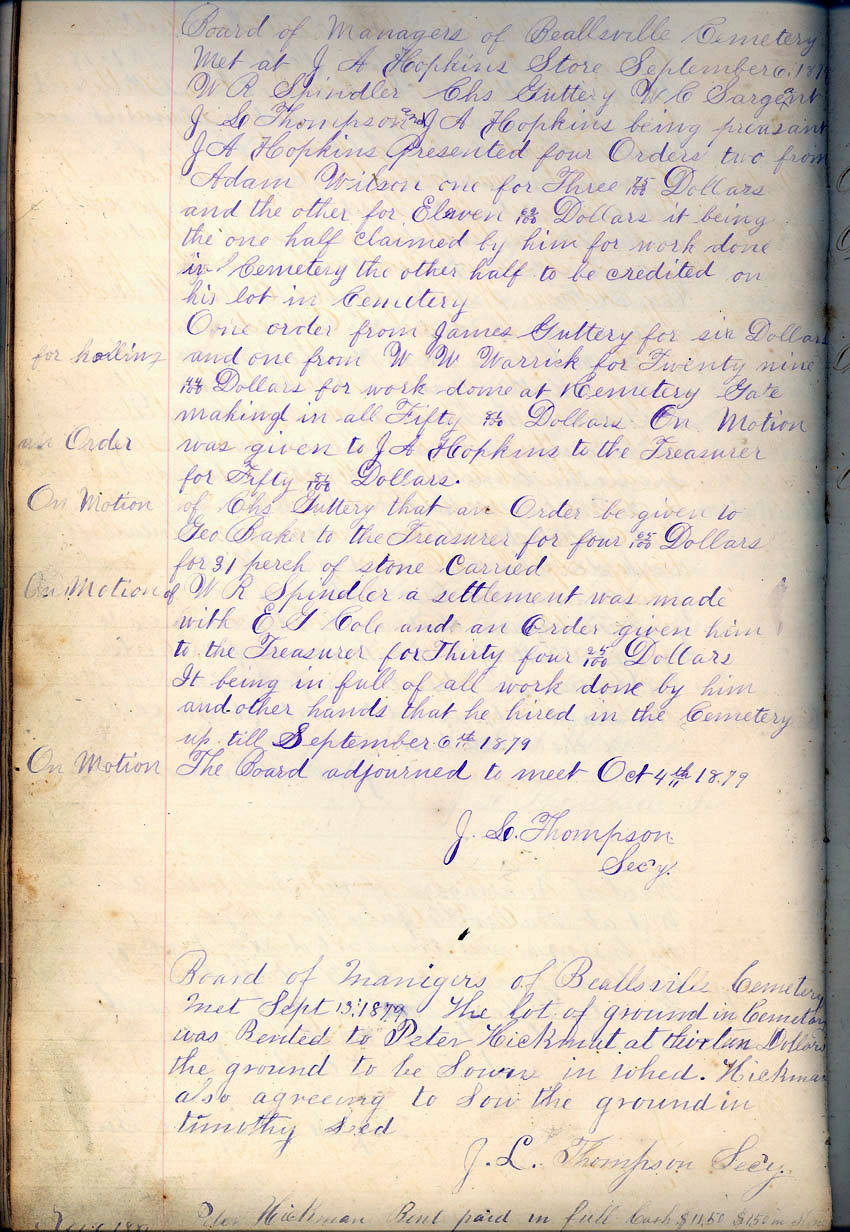 Board of Managers of Beallsville Cemetery
Met at J A Hopkins Store September 6, 187
W R Spindler Chs Guttery W C Sargeant
J L Thompson and J A Hopkins being preasant
J A Hopkins Presented four Orders two from
Adam Wilson one for Three 75/100 Dollars
and the other for Eleven /100 Dollars it being
the one half claimed by him for work done
in Cemetery the other half to be credited on
his lot in Cemetery
One order from James Guttery for six Dollars
for halling and one from W W Warrick for Twenty nine
44/100 Dollars for work done at Cemetery Gate
making in all Fifty 81/100 Dollars On Motion
an Order was given to J A Hopkins to the Treasurer
for Fifty 81/100 Dollars.
On Motion of Chs Guttery that an Order be given to
Geo Baker to the Treasurer for four 65/100 Dollars
for 31 perch of stone Carried
On Motion of W R Spindler a settlement was made
with E G Cole and an Order given him
to the Treasurer for Thirty four 25/100 Dollars
It being in full of all work done by him
and other hands that he hired in the Cemetery
up till September 6th 1879
On Motion The Board adjourned to meet Oct 4th 1879
J. L. Thompson
Secy.
Board of Manigers of Beallsville Cemetery
Met Sept 13, 1879 The lot of ground in Cemetary
was Rented to Peter Hickman at thirteen Dollars
the ground to be Sown in whed. Hickman
also agreeing to Sow the ground in
timothy Seed
J. L. Thompson Secy.
Hickman Rent paid in full Cash $11,50 $150 in